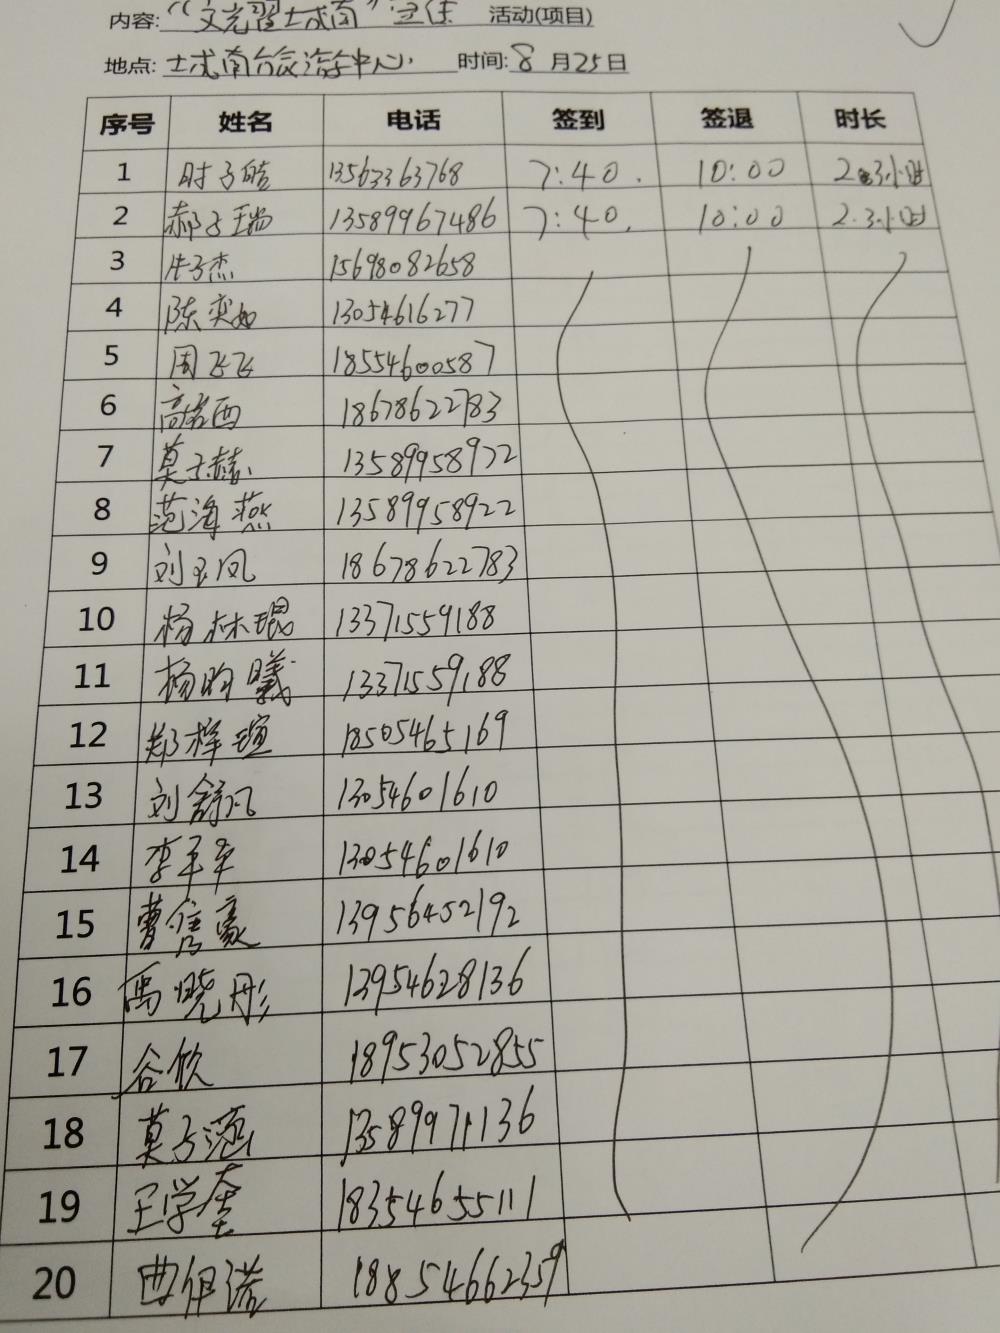 内容: 活动(项目)
地点: 土城南旅游中心 时间: 8 月 25 日
序号 姓名 电话 签到 签退 时长
1 时子皓 13563363768 7:40. 10:00 2.3小时
2 郝子瑞 13589967486 7:40. 10:00 2.3小时
3 牛子杰 15698082658
4 陈奕如 13054616277
5 周飞飞 18554600587
6 高若西 18678622783
7 莫子赫 13589958922
8 范海燕 13589958922
9 刘玉凤 18678622783
10 杨林琨 13371559188
11 杨昀曦 13371559188
12 郑梓瑄 18505465169
13 刘舒凡 13054601610
14 李平平 13054601610
15 曹隽豪 13956452192
16 禹晓彤 13954628136
17 谷欣 18953052855
18 莫子涵 13589971136
19 王学奎 18354655111
20 曲伊诺 18854662359